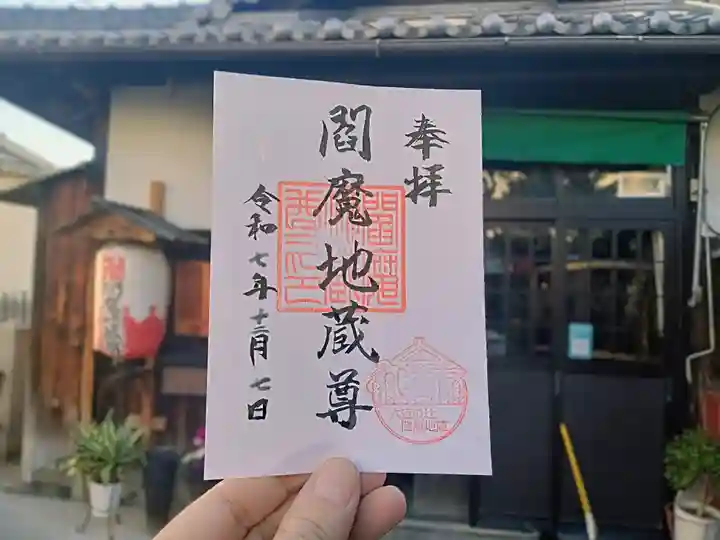 奉拝
閻魔地蔵尊
令和七年十二月七日